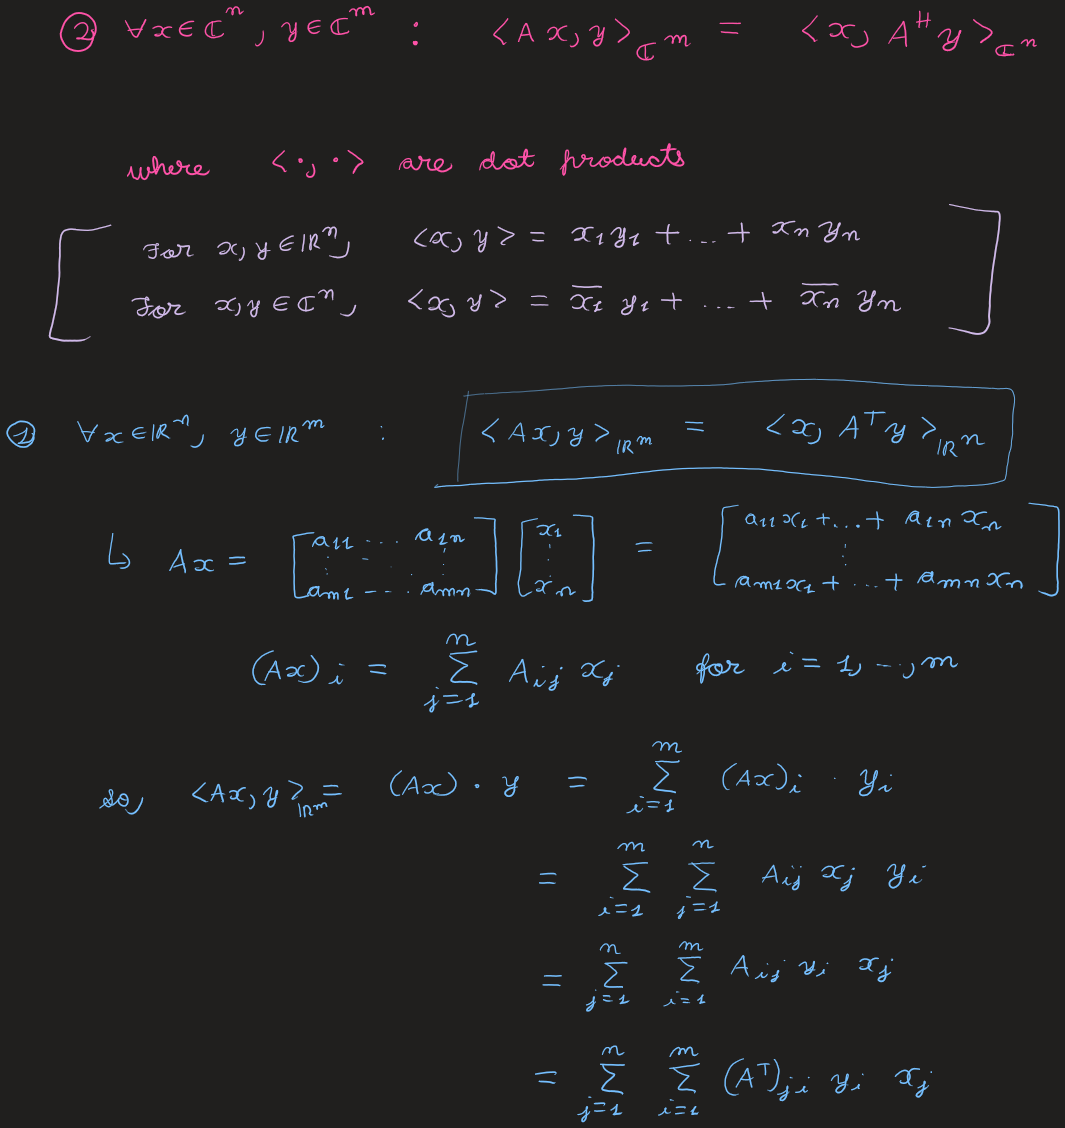 ② ∀x∈ℂⁿ, y∈ℂᵐ : <Ax, y>_ℂᵐ = <x, Aᴴy>_ℂⁿ
where <·,·> are dot products
For x, y ∈ ℝⁿ, <x, y> = x₁y₁ + ... + xₙyₙ
For x, y ∈ ℂⁿ, <x, y> = x̅₁ y₁ + ... + x̅ₙ yₙ
① ∀x∈ℝⁿ, y∈ℝᵐ : <Ax, y>_ℝᵐ = <x, Aᵀy>_ℝⁿ
↳ Ax = [a₁₁ ... a₁ₙ ⋮ ⋮ aₘ₁ ... aₘₙ] [x₁ ⋮ xₙ] = [a₁₁x₁ + ... + a₁ₙxₙ ⋮ aₘ₁x₁ + ... + aₘₙxₙ]
(Ax)ᵢ = ∑_{j=1}^{n} Aᵢⱼ xⱼ for i = 1, ..., m
so, <Ax, y>_ℝᵐ = (Ax) · y = ∑_{i=1}^{m} (Ax)ᵢ · yᵢ
= ∑_{i=1}^{m} ∑_{j=1}^{n} Aᵢⱼ xⱼ yᵢ
= ∑_{j=1}^{n} ∑_{i=1}^{m} Aᵢⱼ yᵢ xⱼ
= ∑_{j=1}^{n} ∑_{i=1}^{m} (Aᵀ)ⱼᵢ yᵢ xⱼ